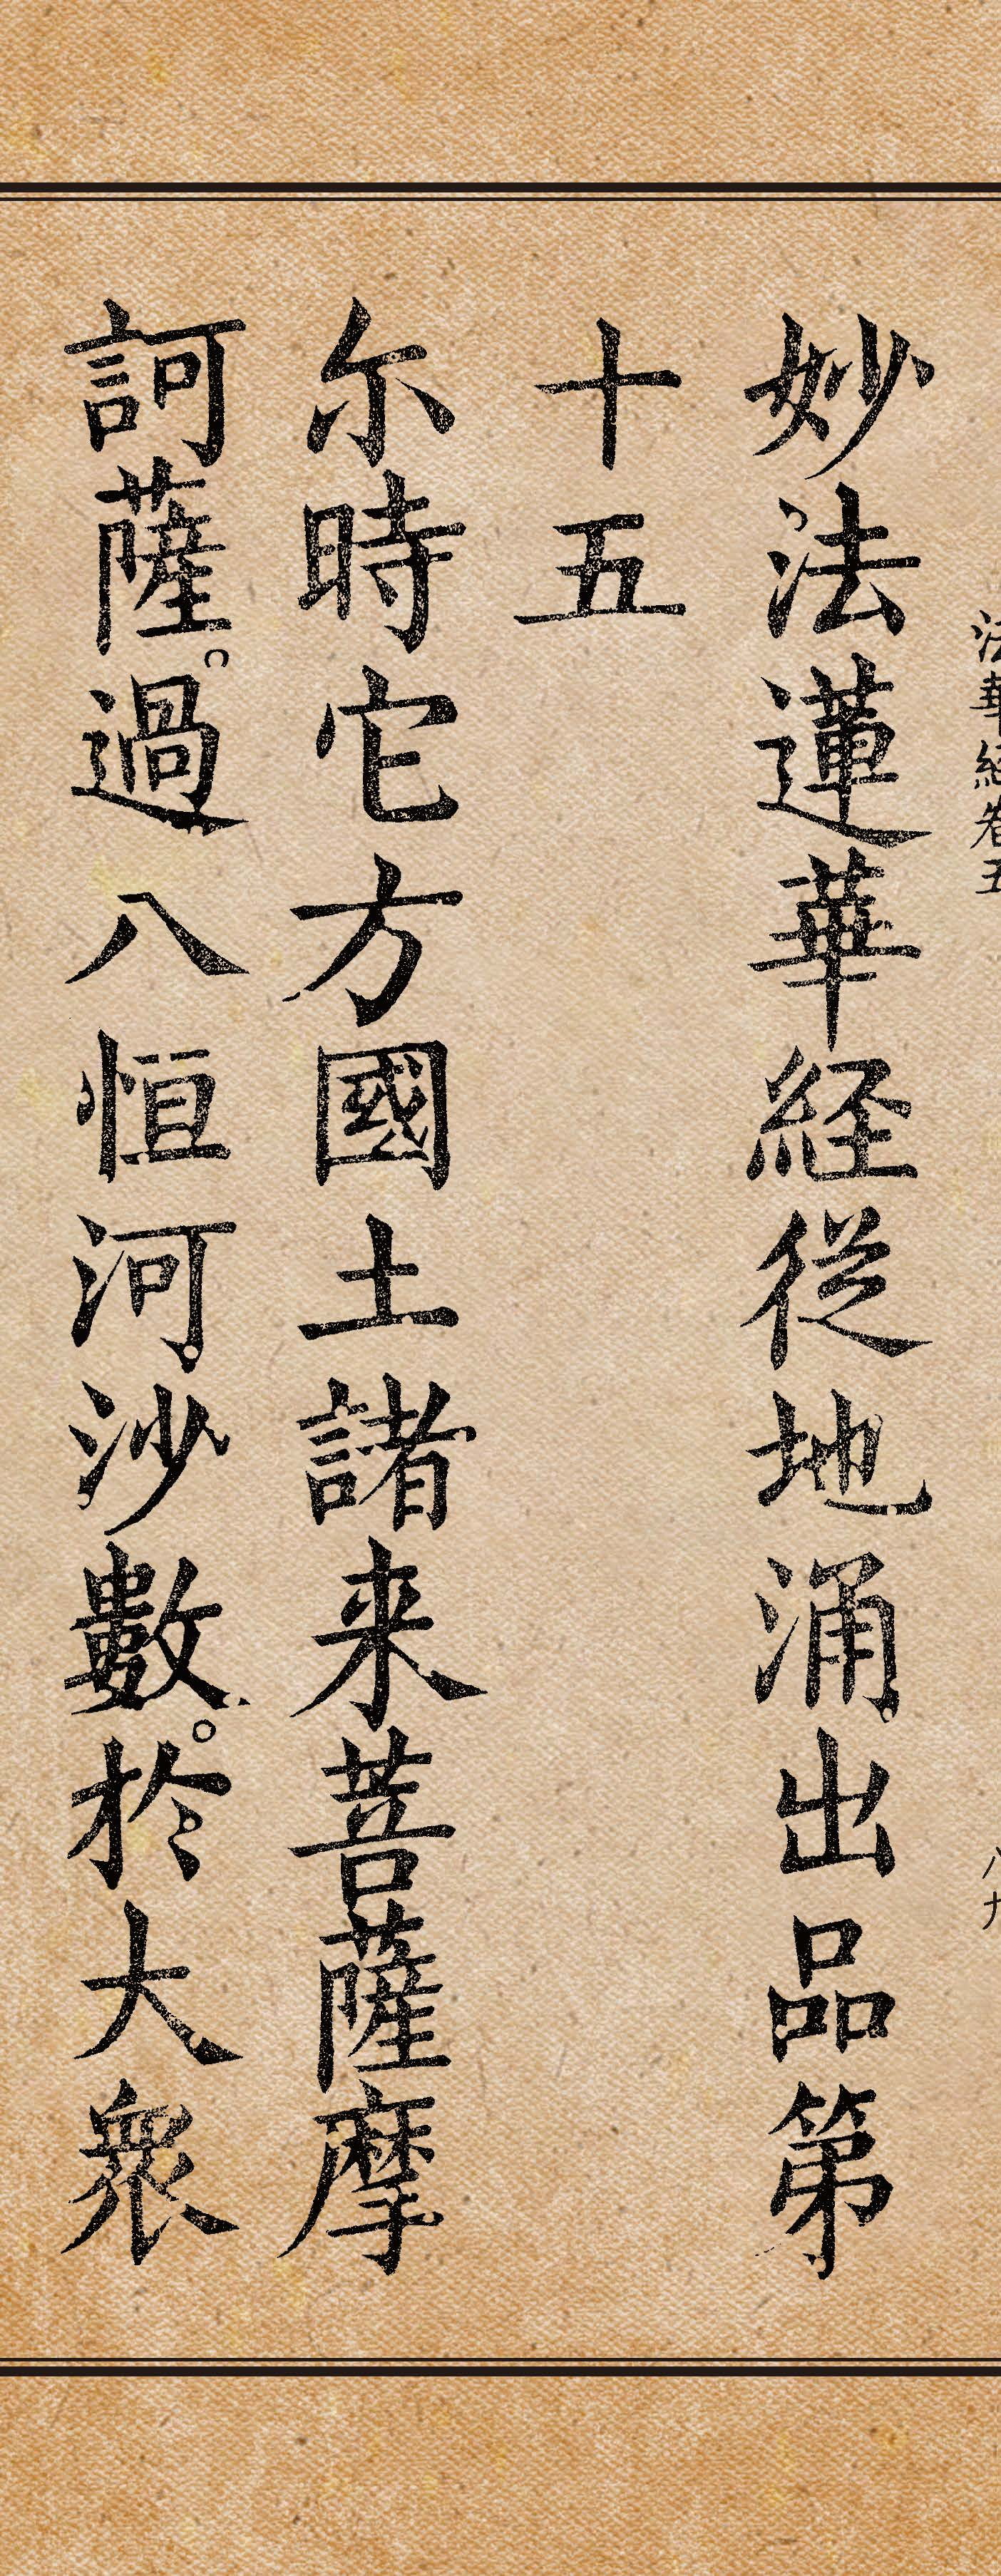 法華經卷五 八九
妙法蓮華経従地涌出品第
十五
尓時它方國土諸来菩薩摩
訶薩。過八恒河沙數。於大衆